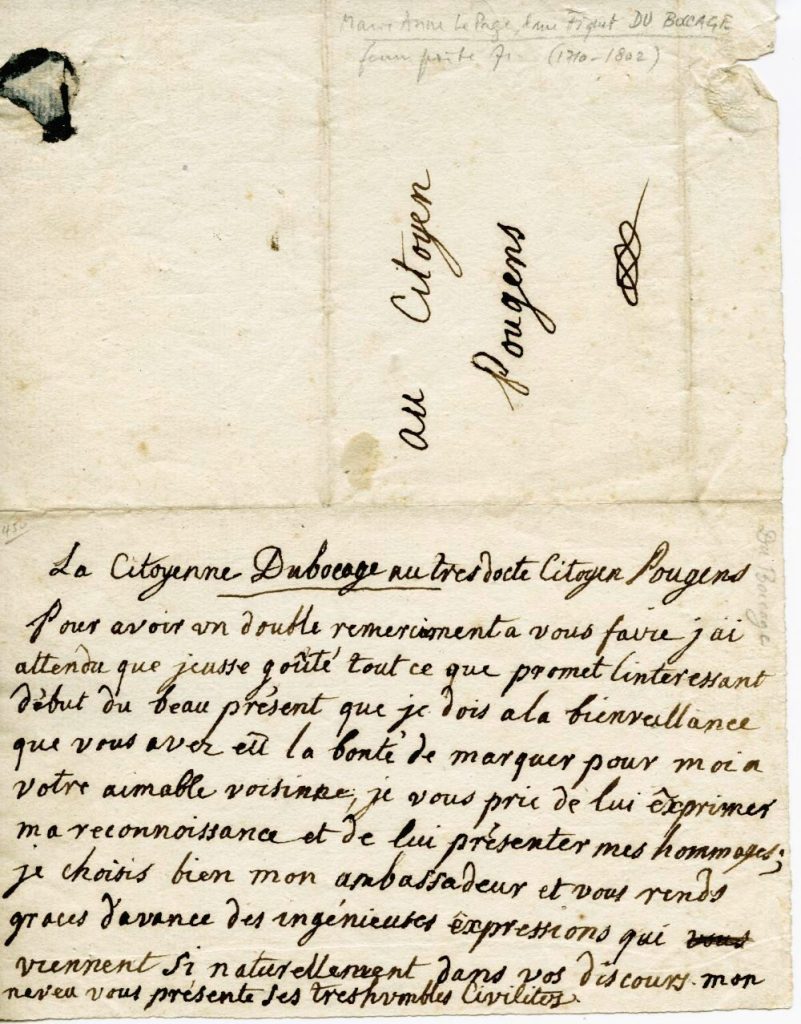 Marie Anne Le Page, dame Fiquet DU BOCCAGE
(1710-1802)
au Citoyen
Pougens
450
Du Boccage
La Citoyenne Dubocage au tres docte Citoyen Pougens
Pour avoir un double remerciment a vous faire j'ai
attendu que jeusse goûté tout ce que promet linteressant
début du beau présent que je dois a la bienveillance
que vous avez eü la bonté de marquer pour moi a
votre aimable voisinne, je vous prie de lui exprimer
ma reconnoissance et de lui présenter mes hommages;
je choisis bien mon ambassadeur et vous rends
graces d'avance des ingénieuses expressions qui vous
viennent si naturellement dans vos discours. mon
neveu vous présente ses tres humbles Civilités.